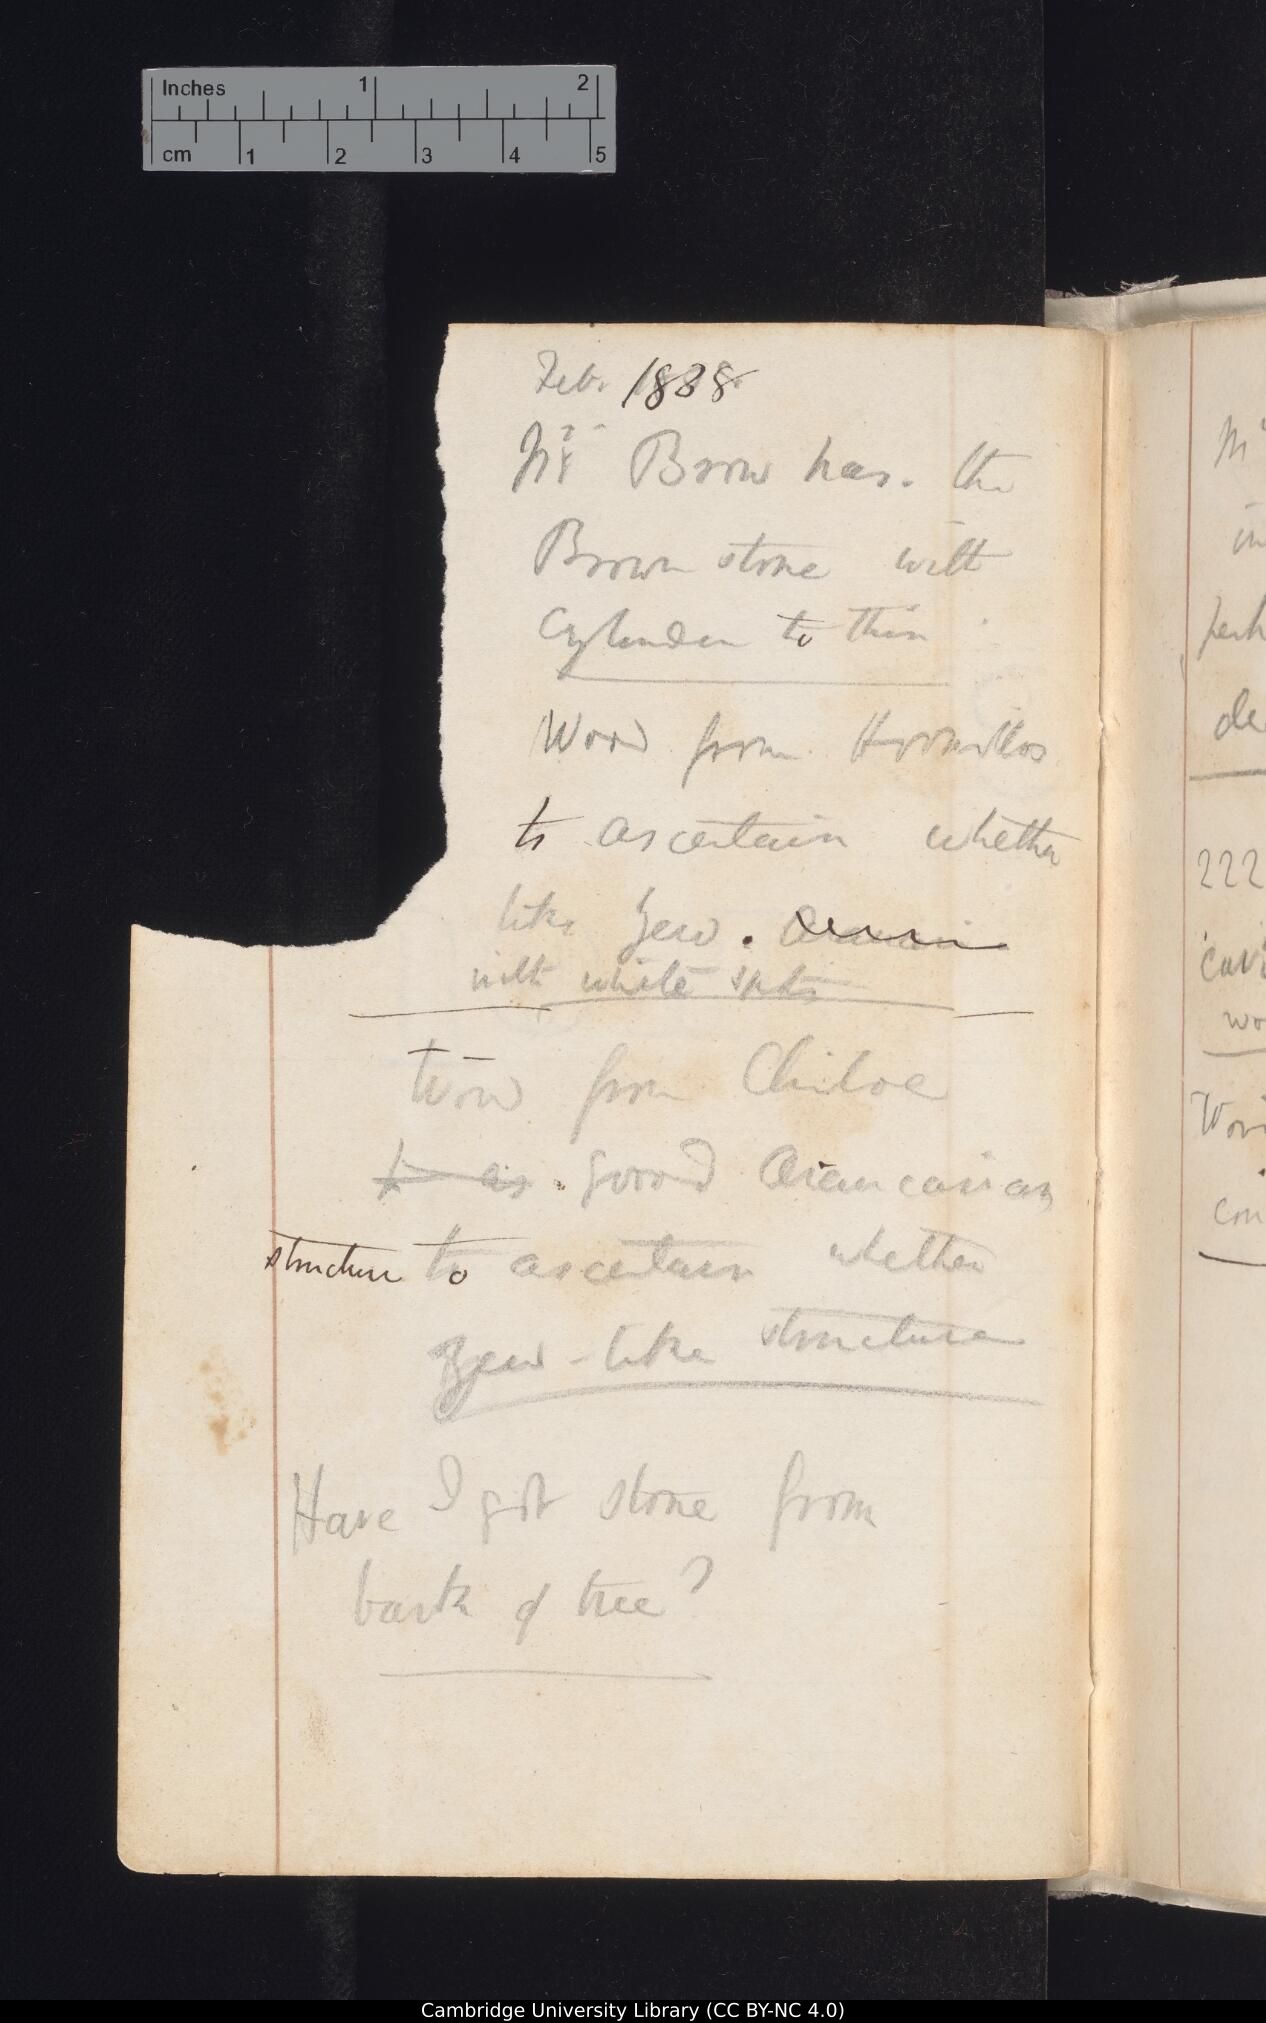 Inches 1 2
cm 1 2 3 4 5
Feb. 1838
Mr Brown has. the
Brown stone with
Cylinder to thin
Wood from Hornillos
to ascertain whether
like Yew.
with white spots
Wood from Chiloe
to as good Araucarian
structure to ascertain whether
Yew-like structure
Have I got stone from
bark of tree?
222
Cambridge University Library (CC BY-NC 4.0)